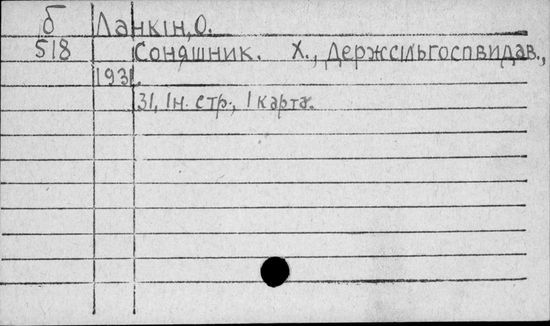 б Ланкін, О.
518 Соняшник. Х., Держсільгоспвидав.,
1931.
31, Ін. стр., 1 карта.